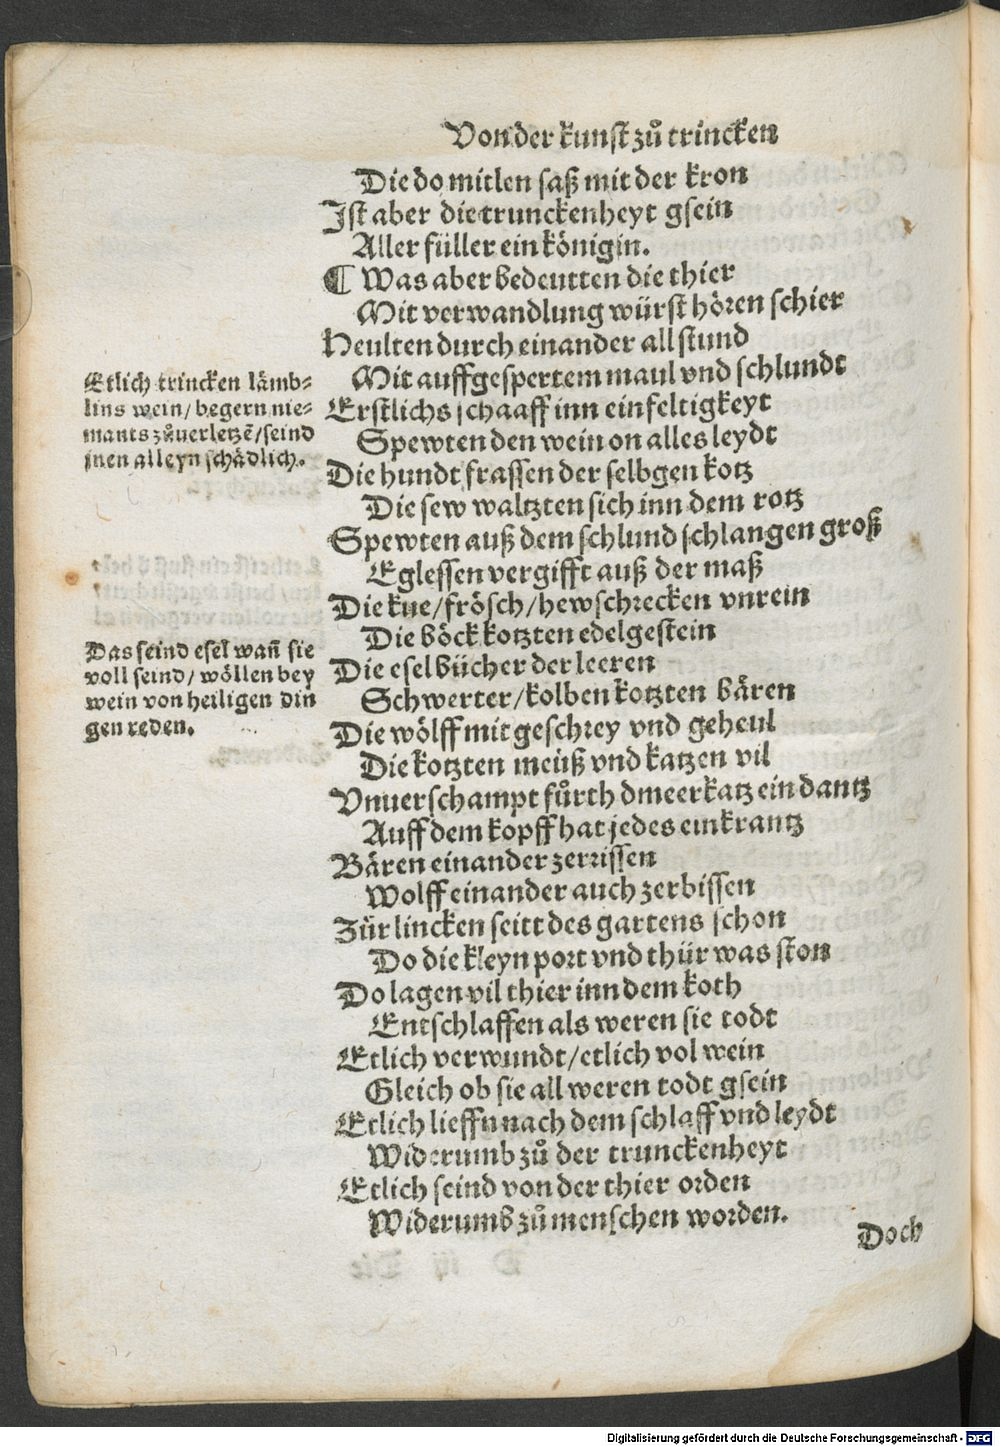 Von der kunst zů trincken
Die do mitlen saß mit der kron
Ist aber die trunckenheyt gsein
Aller füller ein königin.
¶ Was aber bedeutten die thier
Mit verwandlung würst hören schier
Heulten durch einander all stund
Mit auffgespertem maul vnd schlundt
Erstlichs schaaff inn einfeltigkeyt
Spewten den wein on alles leydt
Die hundt frassen der selbgen kotz
Die sew waltzten sich inn dem rotz
Spewten auß dem schlund schlangen groß
Eglessen vergifft auß der maß
Die kue/frösch/hewschrecken vnrein
Die böck kotzten edelgestein
Die esel bücher der leeren
Schwerter/kolben kotzten bären
Die wölff mit geschrey vnd geheul
Die kotzten meüß vnd katzen vil
Vnuerschampt fůrth dmeerkatz ein dantz
Auff dem kopff hat jedes ein krantz
Bären einander zerrissen
Wolff einander auch zerbissen
Zür lincken seitt des gartens schon
Do die kleyn port vnd thür was ston
Do lagen vil thier inn dem koth
Entschlaffen als weren sie todt
Etlich verwundt/etlich vol wein
Gleich ob sie all weren todt gsein
Etlich lieffn nach dem schlaff vnd leydt
Widerumb zů der trunckenheyt
Etlich seind von der thier orden
Widerumb zů menschen worden.
Doch
Etlich trincken lämb-
lins wein/begern nie-
mants zůuerletzē/seind
jnen alleyn schädlich.
Das seind esel wañ sie
voll seind/wöllen bey
wein von heiligen din
gen reden.
Digitalisierung gefördert durch die Deutsche Forschungsgemeinschaft - DFG